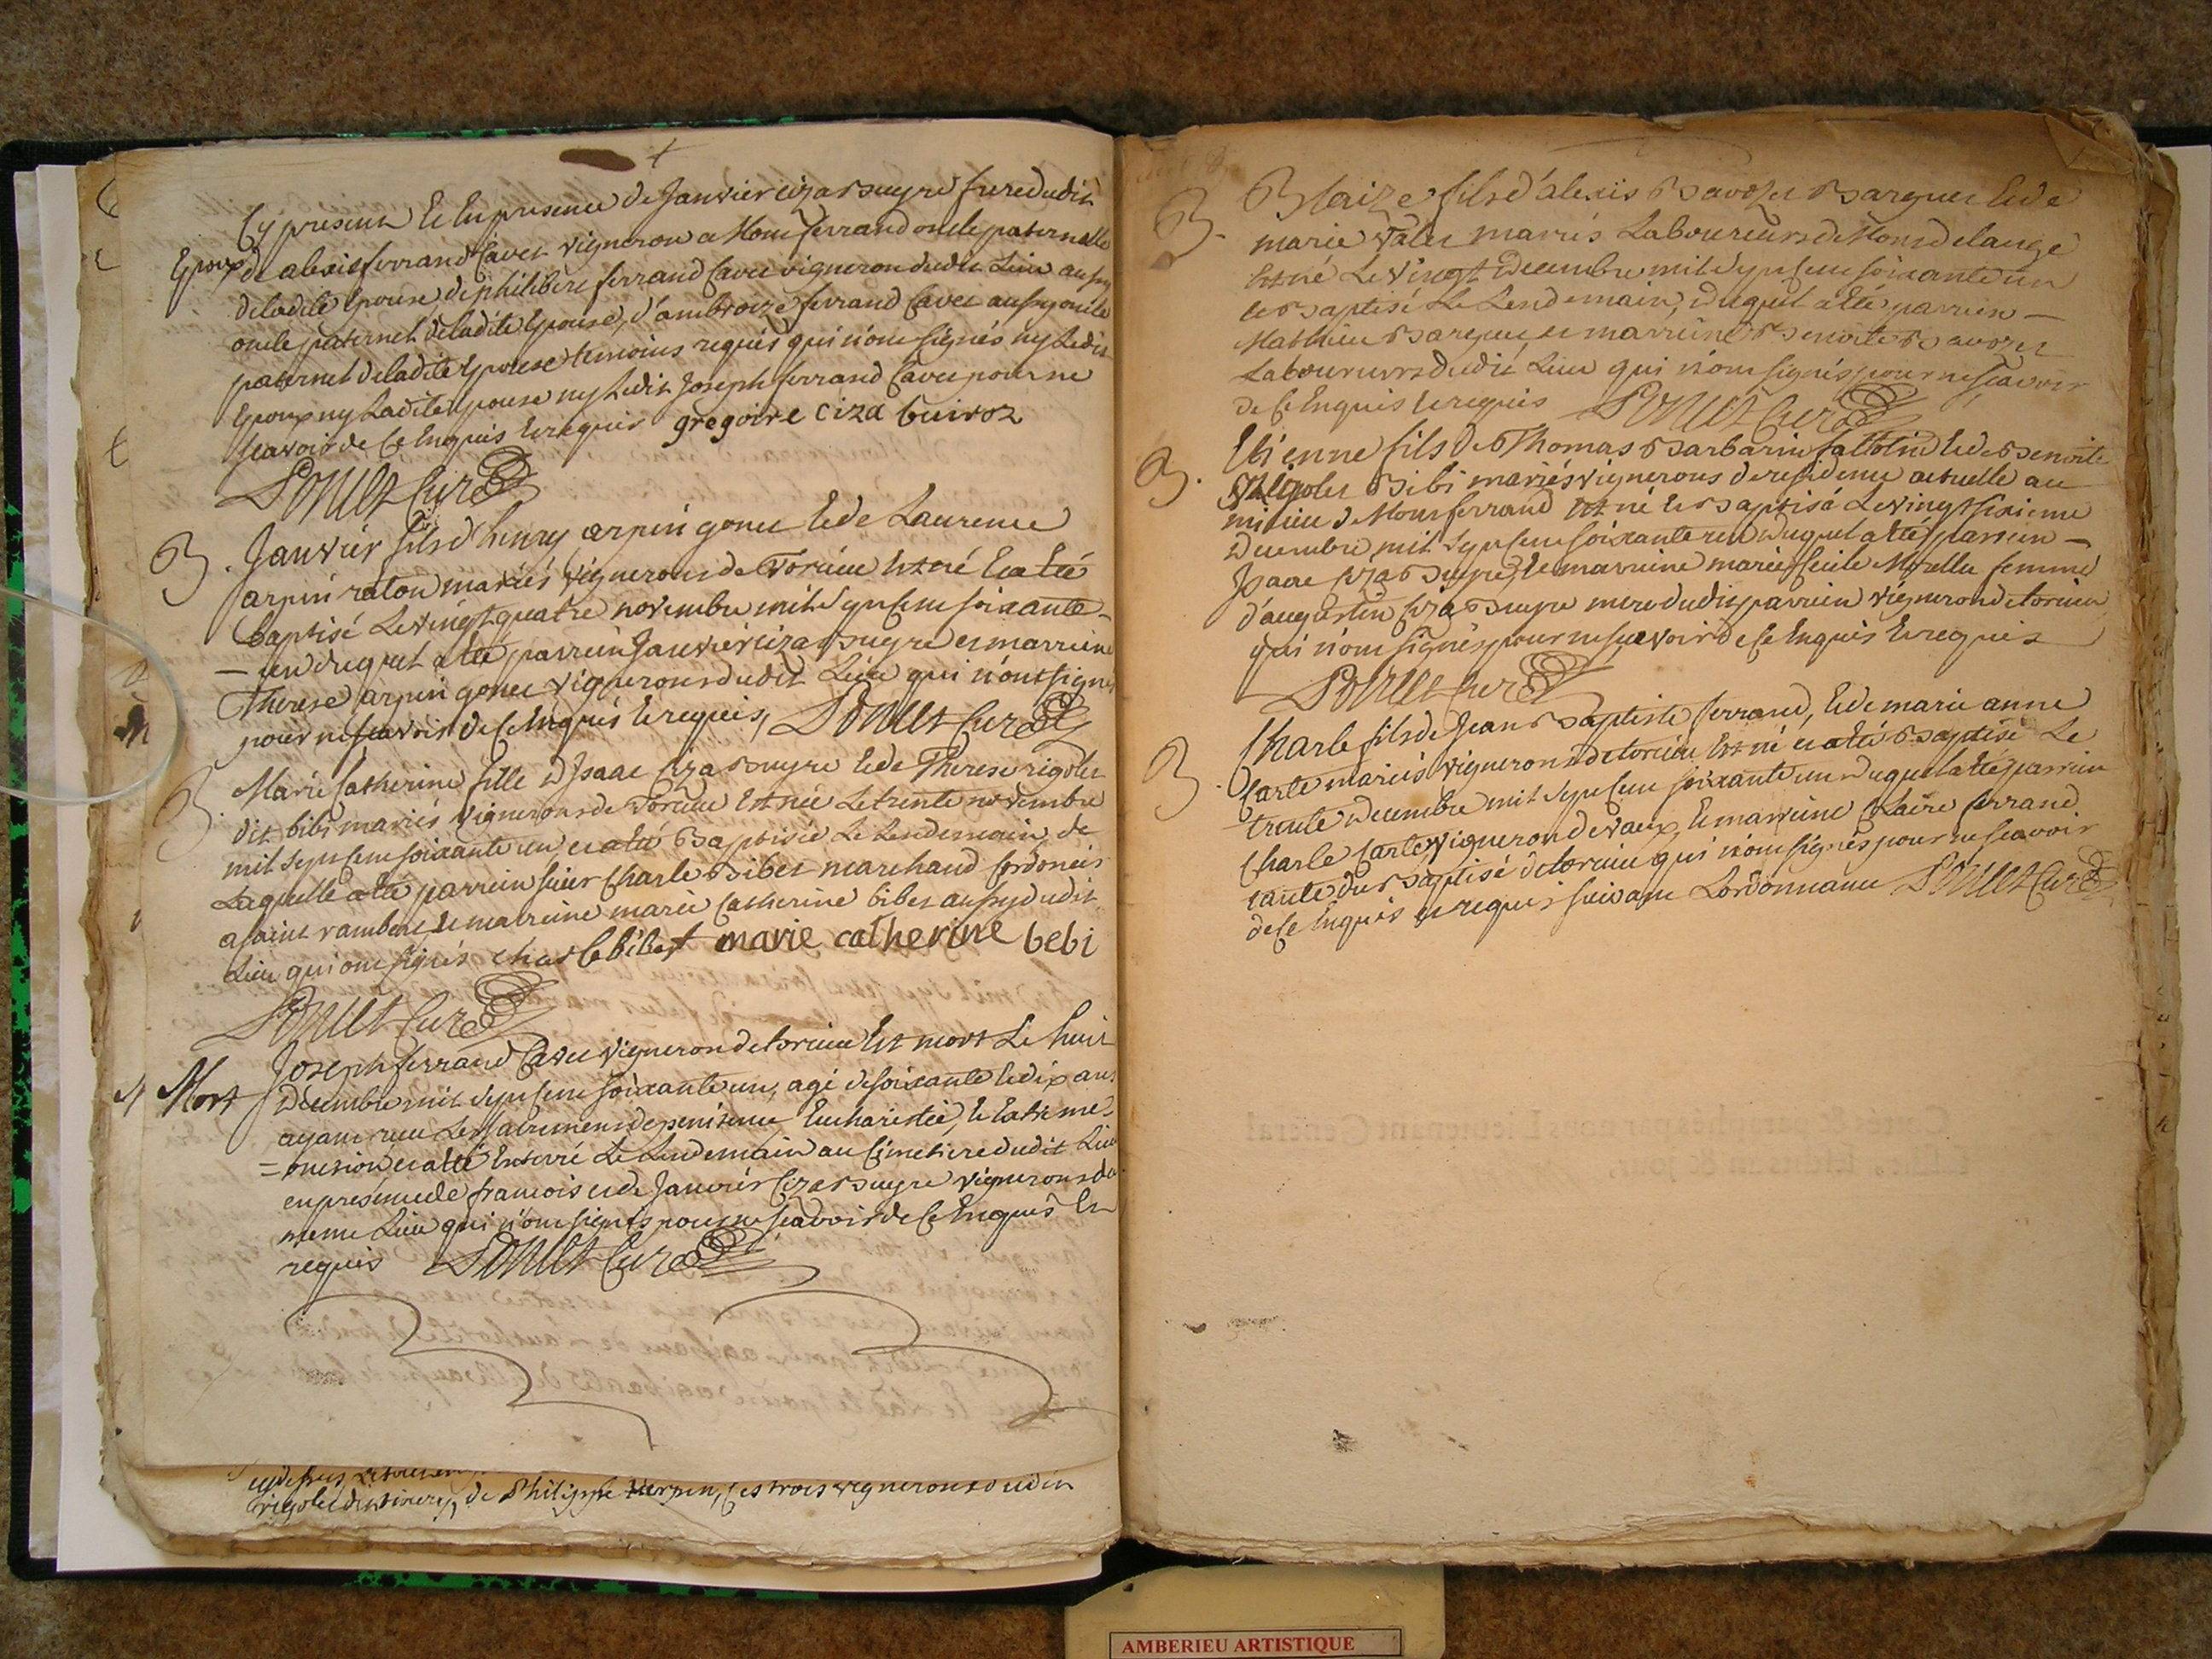 Cy present Et En presence de Janvier ciza Buyre frere dudit
Epoux de alexis ferrand Cavet vigneron a Monferrand oncle paternelle
de ladite Epouse de philibert ferrand Cavet vigneron dudit Lieu aussy
oncle paternel de ladite Epouse, d'ambroize ferrand Cavet aussy oncle
paternel de ladite Epouse temoins requis qui n'ont signés ny Ledit
Epoux ny Ladite Epouse ny Ledit Joseph ferrand Cavet pour ne
scavoir de ce Enquis Et requis gregoire ciza buiroz
Bonnet Curé
B. Janvier fils d'henry arpin gonet Et de Laurence
arpin raton mariés vignerons de Torcieu Est né Et a Eté
baptisé Le vingt quatre novembre mil Sept cent soixante
— un duquel a Eté parrein Janvier ciza Buyre et marreine
Therese arpin gonet vignerons dudit Lieu qui n'ont signés
pour ne scavoir de ce Enquis Et requis, Bonnet Curé
B. Marie Catherine fille d'Isaac Ciza Buyre Et de Therese rigolet
dit bibi mariés vignerons de Torcieu Est née Le trente novembre
mil Sept cent soixante un et a Eté Baptisée Le Lendemain de
Laquelle a Eté parrein sieur Charle Bibet marchand Cordonnier
a saint rambert Et marreine marie Catherine bibet aussy dudit
Lieu qui ont signés charle bibet marie catherine bebi
Bonnet Curé
Mort Joseph ferrand Cavet vigneron de torcieu Est mort Le huit
decembre mil Sept cent soixante un, agé de soixante Et dix ans
ayant recu Les sacremens de penitence Eucharistie, Et Extreme
= onction et a Eté Enterré Le Lendemain au Cimetiere dudit Lieu
en presence de francois et de Janvier Ciza Buyre vignerons du
meme Lieu qui n'ont signés pour ne scavoir de ce Enquis Et
requis Bonnet Curé
cy dessus
rigolet de Philippe , ces trois vignerons dudit
B. Blaize fils d'alexis Bavozet Barquet Et de
marie Valet mariés Laboureurs de Mons de lange
Est né Le vingt decembre mil Sept cent soixante un
et Baptisé Le Lendemain, duquel a Eté parrein —
Mathieu Barquet et marreine Benoite Bavozet
Laboureurs dudit Lieu qui n'ont signés pour ne scavoir
de ce Enquis Et requis Bonnet Curé
B. Etienne fils de Thomas Barbarin fallotin Et de Benoite
Rigolet Bibi mariés vignerons de residence actuelle au
milieu de Monferrand Est né Et Baptisé Le vingt sixieme
decembre mil Sept cent soixante un duquel a Eté parrein —
Isaac ciza Buyre, Et marreine marie Cecile Morellet femme
d'augustin ciza Buyre mere dudit parrein vigneron de torcieu
qui n'ont signés pour ne scavoir de ce Enquis Et requis
Bonnet Curé
B. Charle fils de Jean Baptiste ferrand, Et de marie anne
Carte mariés vignerons de torcieu Est né et a Eté Baptisé Le
trente decembre mil Sept cent soixante un duquel a Eté parrein
Charle Carte vigneron de vaux, Et marreine Claire ferrand
tante du Baptisé de torcieu qui n'ont signés pour ne scavoir
de ce Enquis et requis suivant Lordonnance Bonnet Curé
AMBERIEU ARTISTIQUE